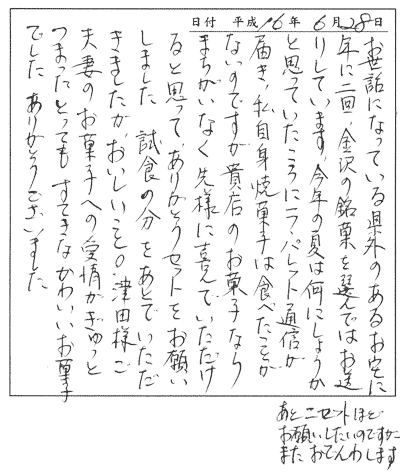 日付 平成16年 6月28日
お世話になっている県外のあるお宅に
年に二回、金沢の銘菓を選んではお送
りしています。今年の夏は何にしようか
と思っていたころにラ・パレット通信が
届き、私自身焼菓子は食べたことが
ないのですが貴店のお菓子なら
まちがいなく先様に喜んでいただけ
ると思って、ありがとうセットをお願い
しました 試食の分をあとでいただ
きましたが、おいしいこと。津田様ご
夫妻のお菓子への愛情がぎゅっと
つまったとってもすてきなかわいいお菓子
でした ありがとうございました
あと二セットほど
お願いしたいのですが
またおでんわします